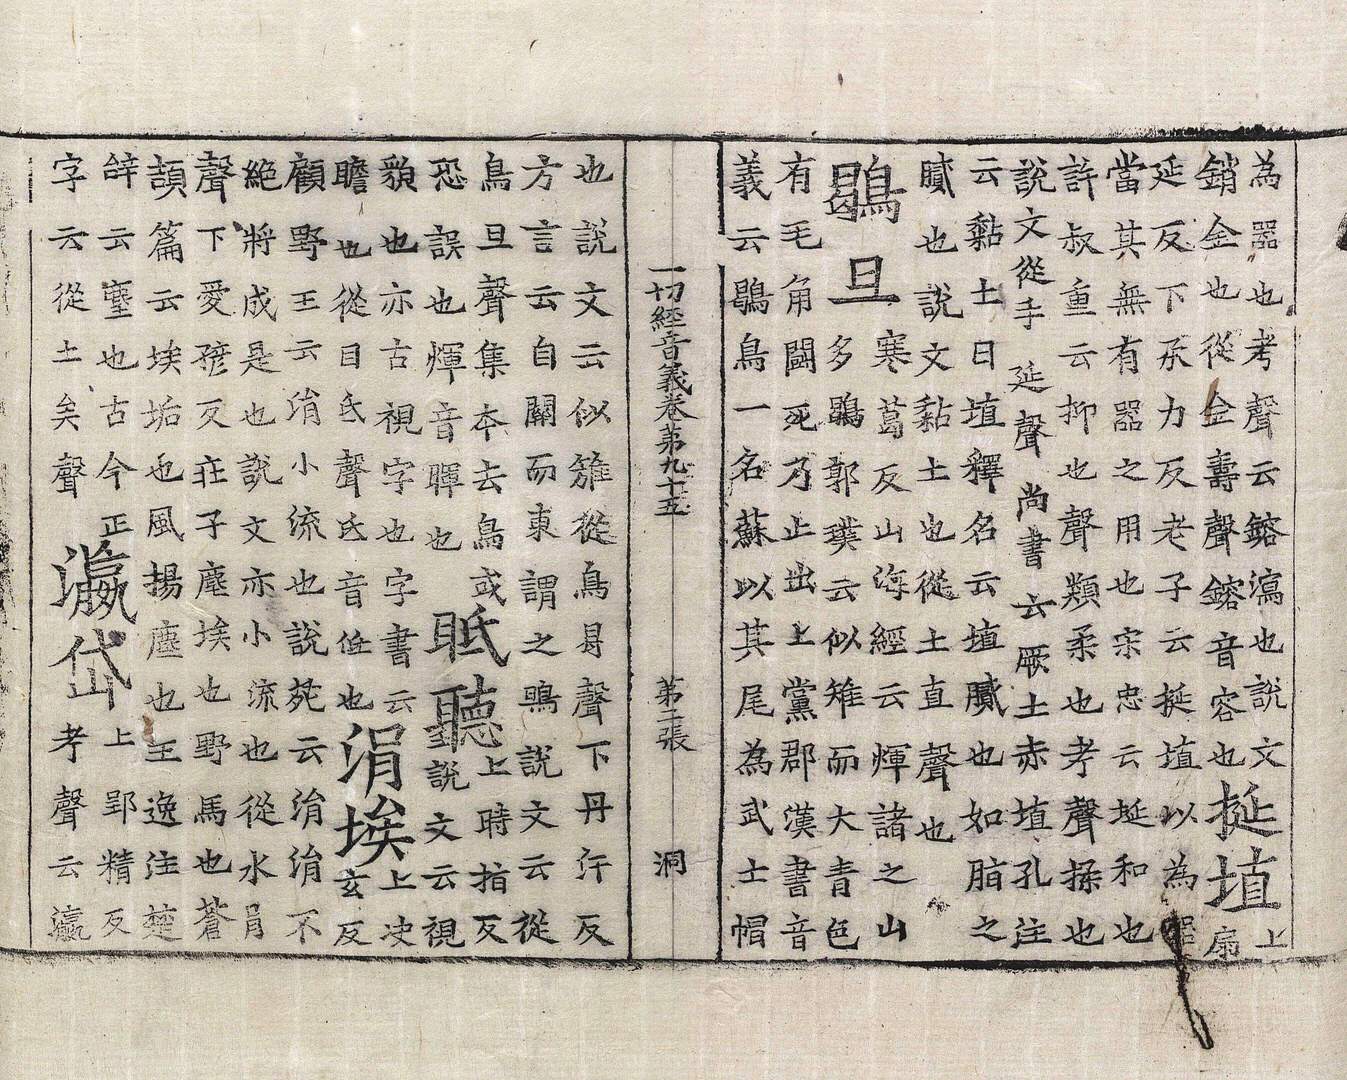 為器也考聲云鎔瀉也說文
銷金也從金壽聲鎔音容也
挻埴
上
扇
延反下承力反老子云挻埴以為器
當其無有器之用也宋忠云挻和也
許叔重云抑也聲類柔也考聲揉也
說文從手延聲尚書云厥土赤埴孔注
云黏土曰埴釋名云埴膱也如脂之
膱也說文黏土也從土直聲也
鶡旦
寒葛反山海經云煇諸之山
多鶡郭璞云似雉而大青色
有毛角鬬死乃止出上黨郡漢書音
義云鶡鳥一名蘇以其尾為武士帽
一切經音義卷第九十五 第二張 洞
也說文云似雉從鳥曷聲下丹汗反
方言云自關而東謂之鳴說文云從
鳥旦聲集本去鳥或
恐誤也煇音暉也
眡聽
上時指反
說文云視
貌也亦古視字也字書云
瞻也從目氐聲氐音低也
涓埃
上決
玄反
顧野王云涓小流也說苑云涓涓不
絕將成是也說文亦小流也從水肙
聲下愛反莊子塵埃也野馬也蒼
頡篇云埃垢也風揚塵也王逸注楚
辝云塵也古今正
字云從土矣聲
瀛岱
上郢精反
考聲云瀛